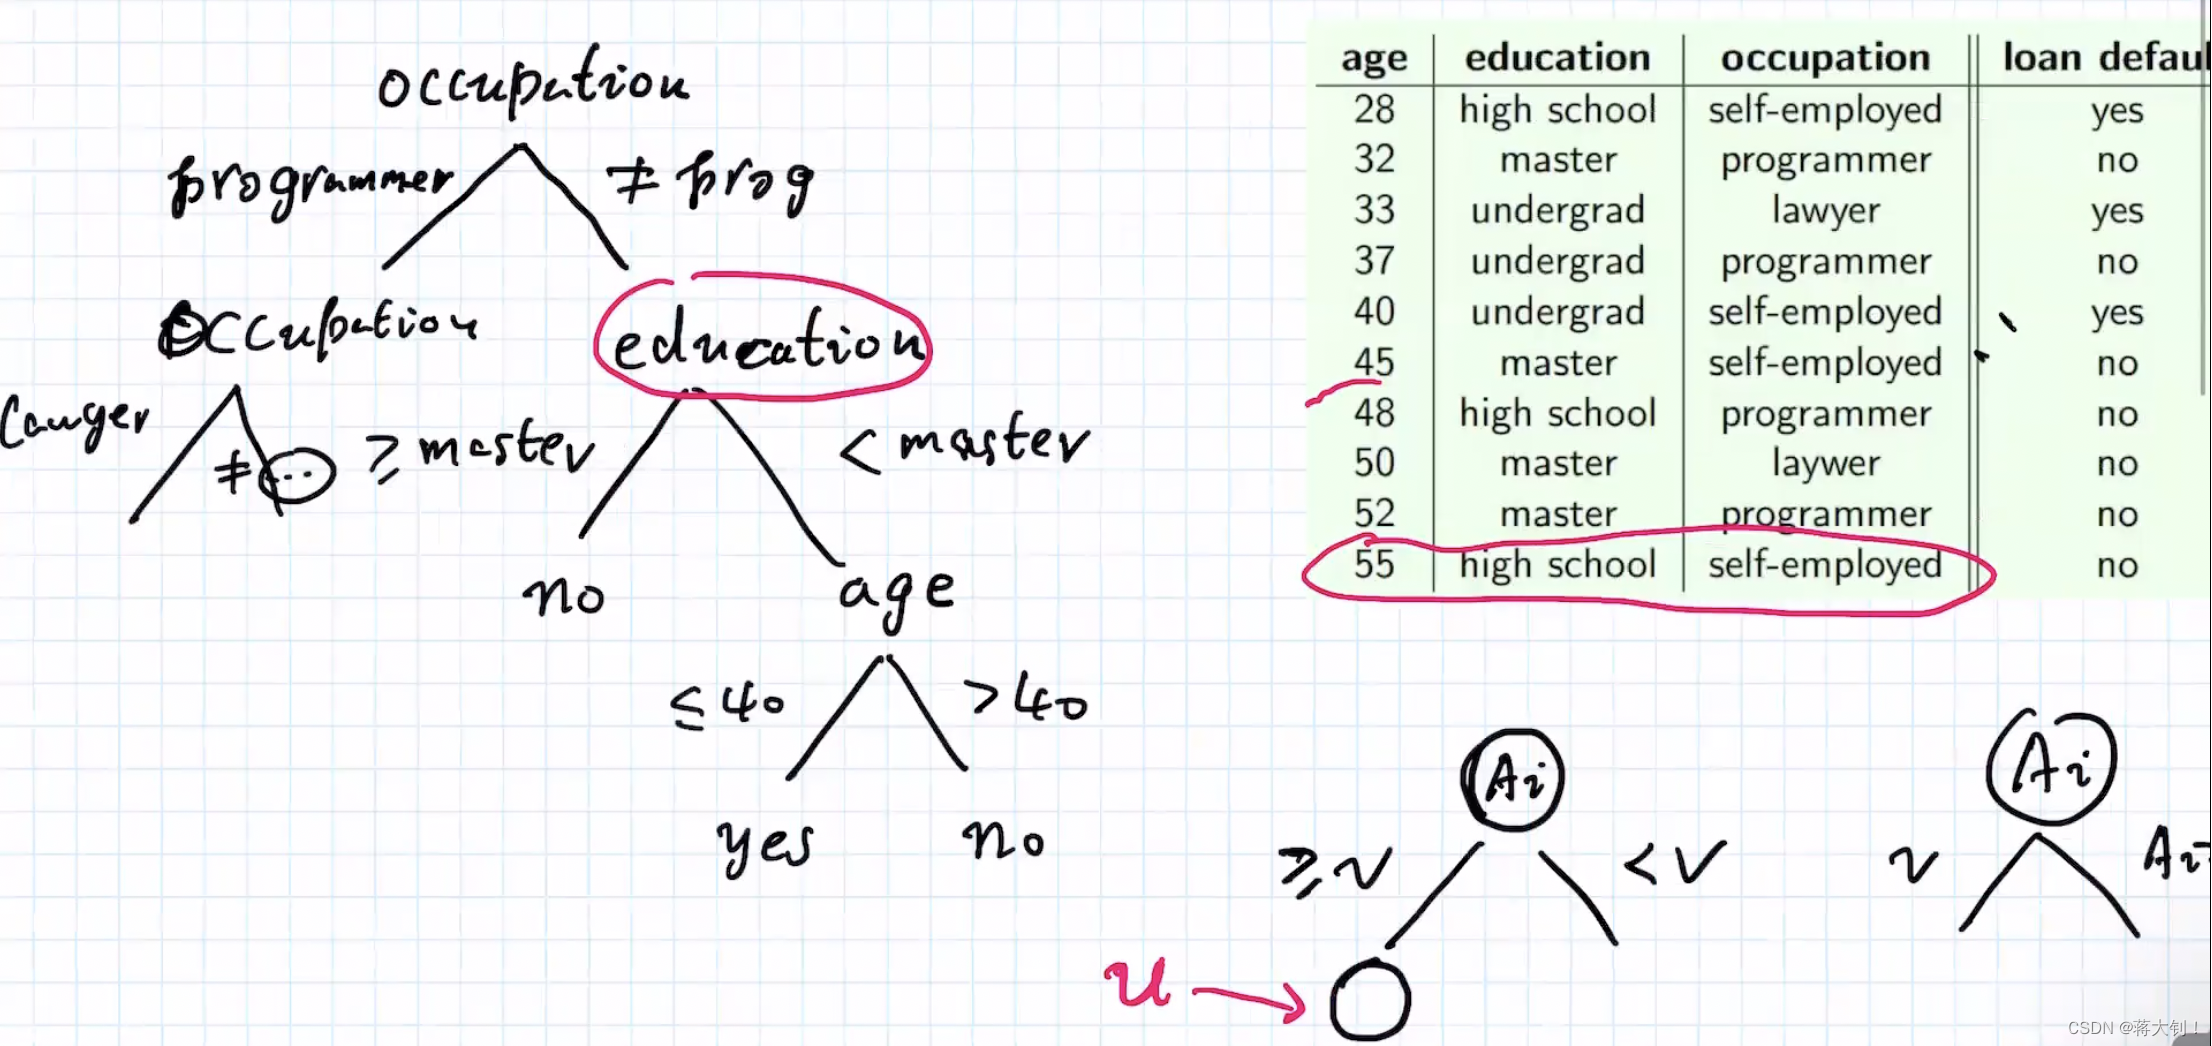 occupation
programmer ≠ prog
occupation education
Lawyer ≠ ... ≥ master < master
no age
≤ 40 > 40
yes no
age education occupation loan defau
28 high school self-employed yes
32 master programmer no
33 undergrad lawyer yes
37 undergrad programmer no
40 undergrad self-employed yes
45 master self-employed no
48 high school programmer no
50 master laywer no
52 master programmer no
55 high school self-employed no
Ai Ai
≥ V < V v Ai
u
CSDN @蒋大钊！